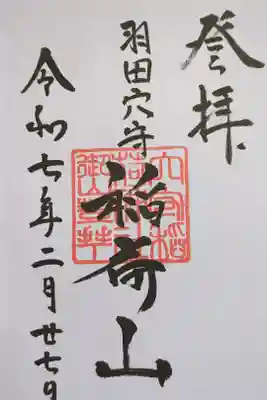 登拝
羽田穴守
稲荷山
令和七年二月廿七日